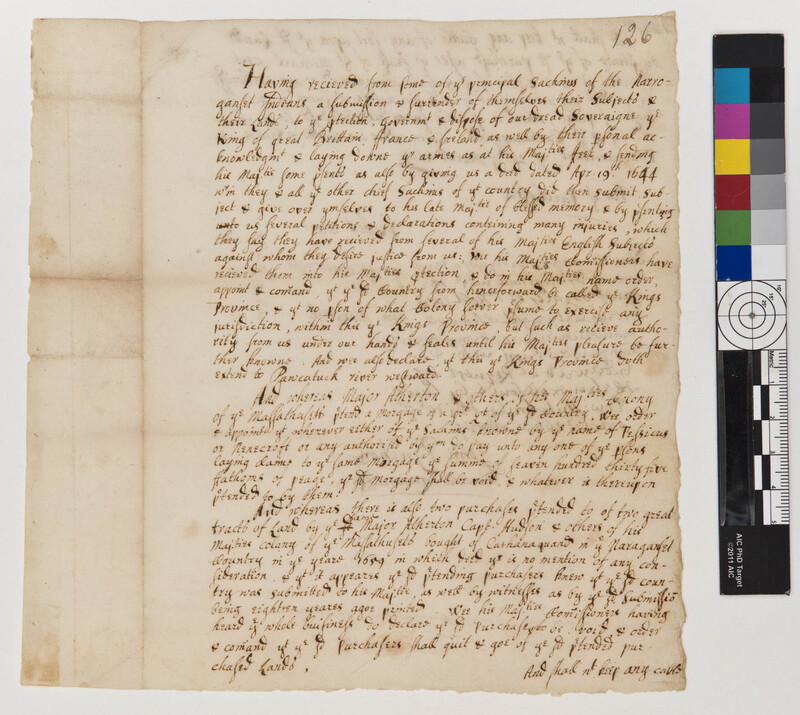 126
Having recieved from some of ye principal Sachims of the Narro-
ganset Indians a submission & surrender of themselves their Subjects &
their Lands, to ye ptection, governmt & dispose of our dread Soveraigne ye
King of great Brettain, france & Ireland, as well by their psonal ac-
knowledgmt & laying downe yr armes as at his Majties feet, & sending
his Majtie some psents as also by giving us a deed dated Apr. 19th 1644
wrin they & all ye other chief Sachims of ye country did then submit sub-
ject & give over ymselves to his late Majtie of blessed memory, & by psenting
unto us several petitions & declarations conteining many injuries, which
they say they have recieved from several of his Majties English Subjects
against whom they desire justice from us: Wee his Majties Comissioners have
recieved them into his Majties ptection, & do in his Majties name order,
appoint & comand, yt ye sd Country from henceforward be called ye Kings
Province, & yt no pson of what Colony soever psume to exercise any
jurisdiction, within this ye Kings Province, but such as recieve autho-
rity from us undre our hands & seales until his Majties pleasure be fur-
ther knowne. And wee also declare yt this ye Kings Province doth
extend to Pawcatuck river westward.
And whereas Major Atherton & others, of his Majties Colony
of ye Massathusets ptend a Morgage of a grt pt of ye sd Country, Wee order
& appoint yt whenever either of ye Sachims knowne by ye name of Pessicus
or Nenecroft or any authorised by ym do pay unto any one of ye psons
laying claime to ye same Morgage ye summe of seaven hundred thirty five
fathoms of peage, ye sd Morgage shall be void, & whatever is thereupon
ptended to by them.
And whereas there is also two purchases ptended to of two great
tracts of Land by ye sd same Major Atherton Capt. Hudson & others of his
Majties colony of ye Massathusets bought of Cathanaquand in ye Naraganset
Country in ye yeare 1659 in which deed yr is no mention of any con-
sideration, & yt it appeares ye sd ptending purchasers knew yt ye sd coun-
try was submitted to his Majtie, as well by witnesses as by ye sd Submissiō
being eighteen yeares agoe printed. Wee his Majties Comissioners having
heard ye whole buisiness do declare ye sd purchases to be void & order
& comand yt ye sd Purchasers shall quit & goe of ye sd ptended pur-
chased Lands,
And shall nt keep any cattle
AIC PhD Target
©2011 AIC